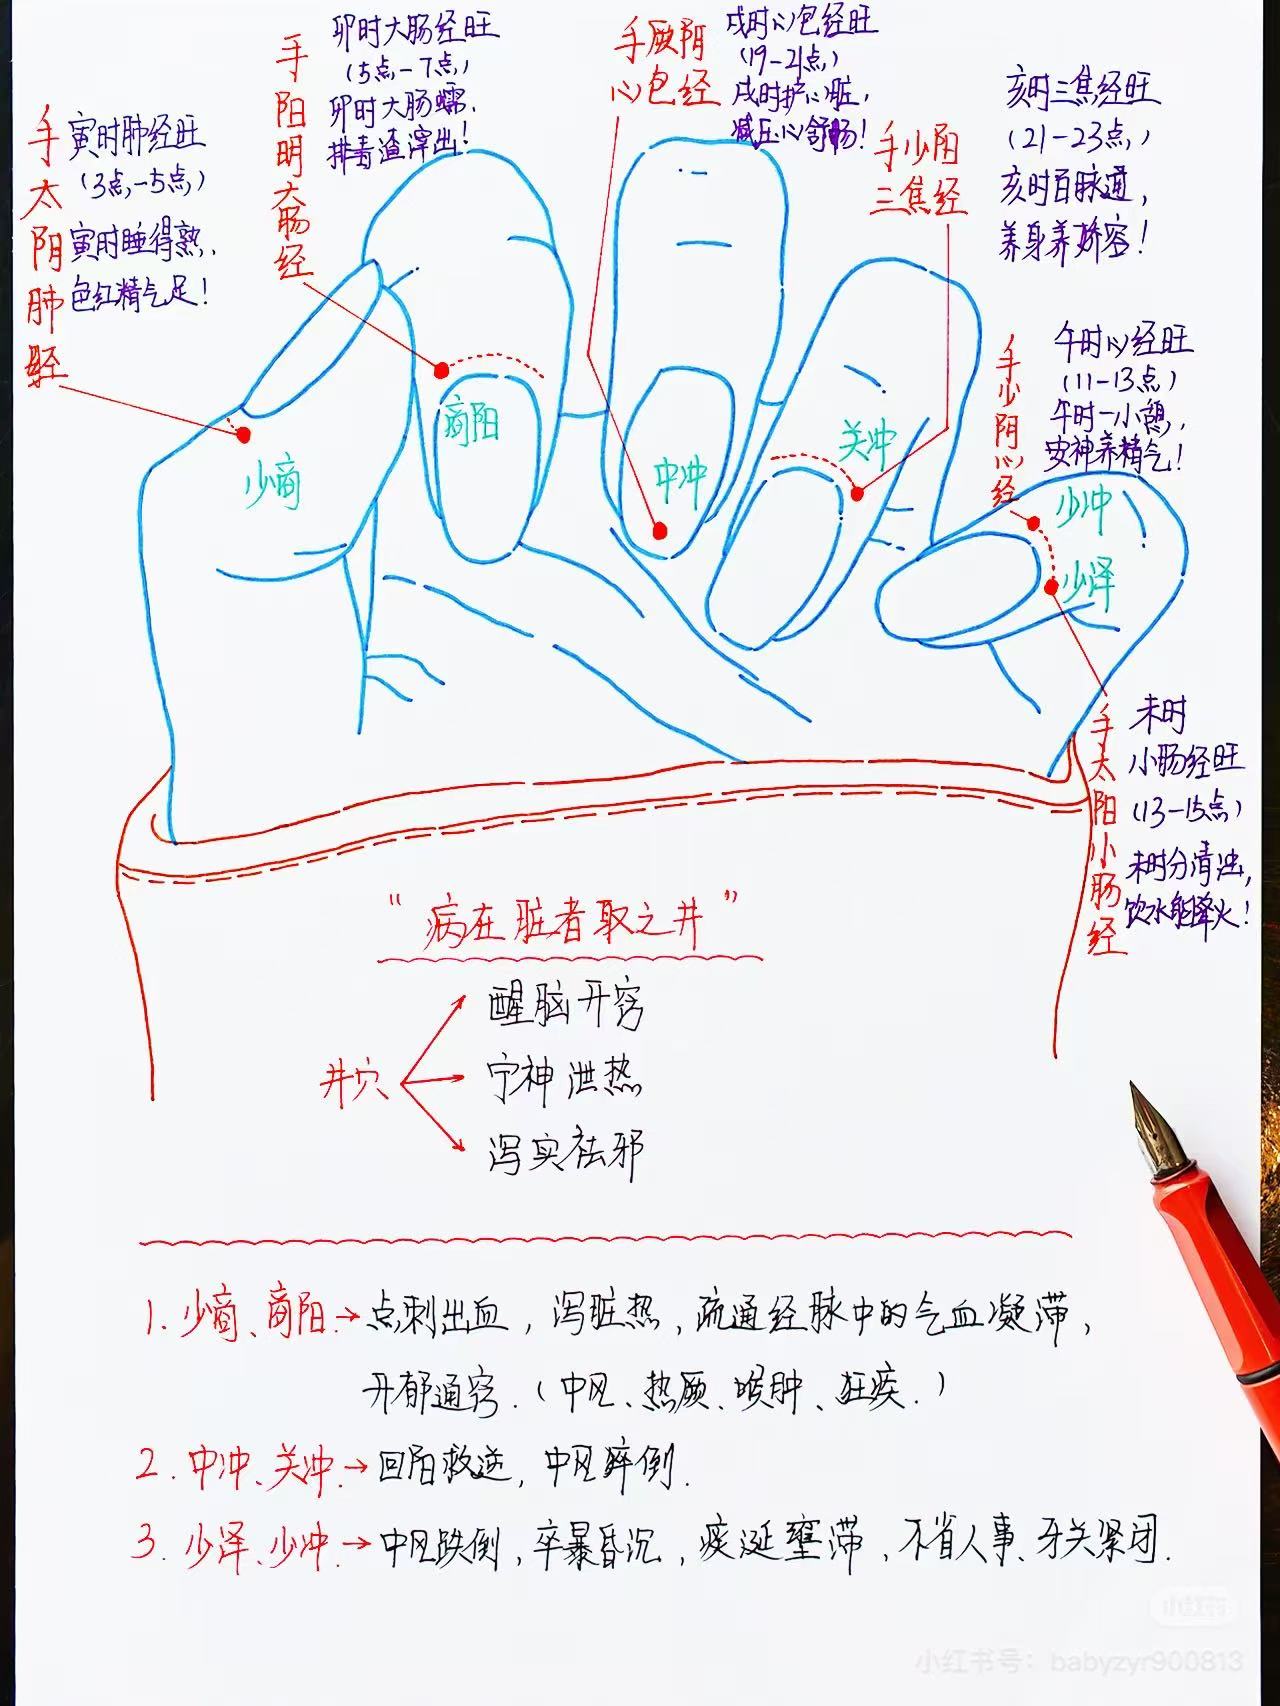 手太阴肺经
寅时肺经旺
(3点-5点)
寅时睡得熟,
色红精气足!
手阳明大肠经
卯时大肠经旺
(5点-7点)
卯时大肠蠕,
排毒渣滓出!
手厥阴
心包经
戌时心包经旺
(19-21点)
戌时护心脏,
减压心舒畅!
手少阳
三焦经
亥时三焦经旺
(21-23点)
亥时百脉通,
养身养娇容!
手少阴心经
午时心经旺
(11-13点)
午时一小憩,
安神养精气!
少商
商阳
中冲
关冲
少冲
少泽
手太阳小肠经
未时
小肠经旺
(13-15点)
未时分清浊,
饮水能降火!
"病在脏者取之井"
井穴
醒脑开窍
宁神泄热
泻实祛邪
1. 少商、商阳→点刺出血,泻脏热,疏通经脉中的气血凝滞,
开郁通窍.(中风、热厥、喉肿、狂疾.)
2. 中冲、关冲→回阳救逆,中风猝倒.
3. 少泽、少冲→中风跌倒,卒暴昏沉,痰涎壅滞,不省人事、牙关紧闭.
小红书
小红书号:babyzyr900813